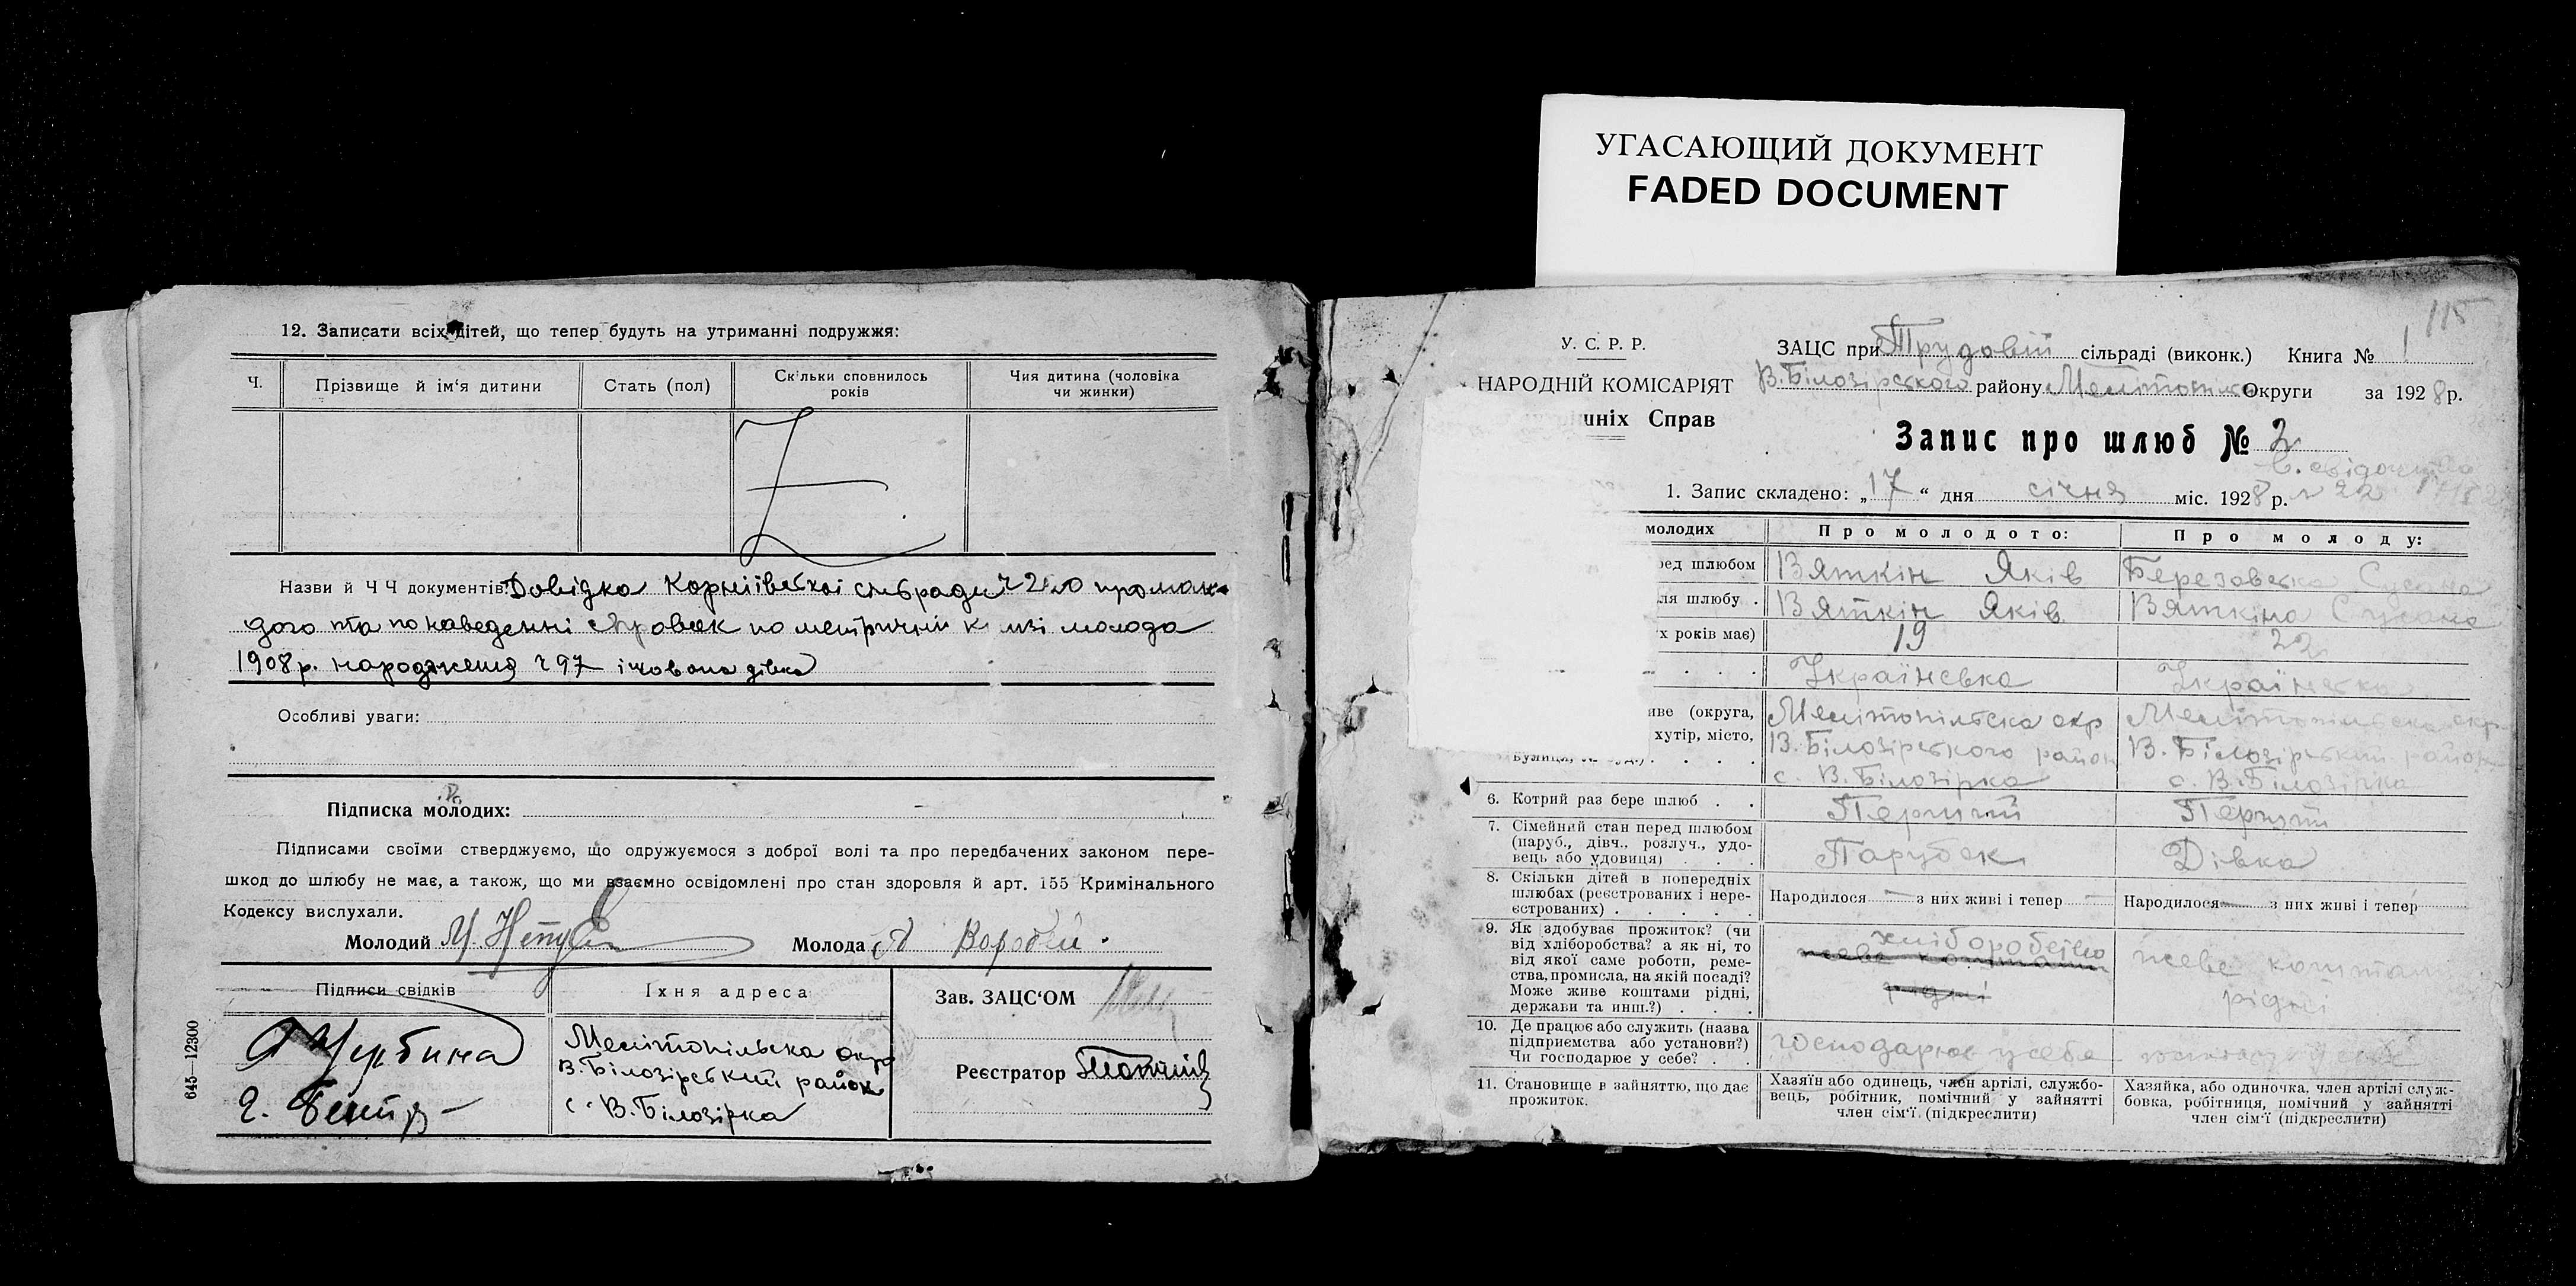 УГАСАЮЩИЙ ДОКУМЕНТ
FADED DOCUMENT
12. Записати всіх дітей, що тепер будуть на утриманні подружжя:
Ч.
Прізвище й ім‘я дитини
Стать (пол)
Скільки сповнилось років
Чия дитина (чоловіка чи жинки)
Назви й Ч Ч документів: Довідка сільради ч 210 про моло-
дого та по наведенні справок по метричній книзі молода
1908 р. народження ч 97 дівка
Особливі уваги:
Підписка молодих:
Підписами своїми стверджуємо, що одружуємося з доброї волі та про передбачених законом пере-
шкод до шлюбу не має, а також, що ми взаємно освідомлені про стан здоровля й арт. 155 Кримінального
Кодексу вислухали.
Молодий М. Молода Воробйй
Підписи свідків
Їхня адреса
Зав. ЗАЦС‘ОМ
Щербина
Мелітопільська окр
В. Білозірський район
с. В. Білозірка
Реєстратор
645—12300
115
У. С. Р. Р.
НАРОДНІЙ КОМІСАРІЯТ
шніх Справ
ЗАЦС при Трудовій сільраді (виконк.) Книга № 1
В. Білозірського району Мелітопільс Округи за 1928 р.
Запис про шлюб № 2
1. Запис складено: „17“ дня січня міс. 1928 р.
№ 22
молодих
Про молодого:
Про молоду:
ред шлюбом
Вяткін Яків
Березовська Сусана
ля шлюбу .
Вяткін Яків
Вяткіна Сусана
х років має)
19
22
Українська
Українська
иве (округа,
хутір, місто,
Мелітопільська окр
В. Білозірського район
с. В. Білозірка
Мелітопільська окр
В. Білозірський район
с. В. Білозірка
6. Котрий раз бере шлюб . .
Перший
Перший
7. Сімейний стан перед шлюбом
(паруб., дівч., розлуч., удо-
вець або удовиця) . . .
Парубок
Дівка
8. Скільки дітей в попередніх
шлюбах (реєстрованих і нере-
єстрованих) . . . . .
Народилося — з них живі і тепер —
Народилося — з них живі і тепер
9. Як здобуває прожиток? (чи
від хліборобства? а як ні, то
від якої саме роботи, реме-
ства, промисла, на якій посаді?
Може живе коштами рідні,
держави та инш.?) . . .
хліборобство
живе коштами
рідні
живе коштами
рідні
10. Де працює або служить (назва
підприємства або установи?)
Чи господарює у себе? . .
господарює у себе
11. Становище в зайняттю, що дає
прожиток.
Хазяїн або одинець, член артілі, службо-
вець, робітник, помічний у зайнятті
член сім‘ї (підкреслити)
Хазяйка, або одиночка, член артілі служ-
бовка, робітниця, помічний у зайнятті
член сім‘ї (підкреслити)